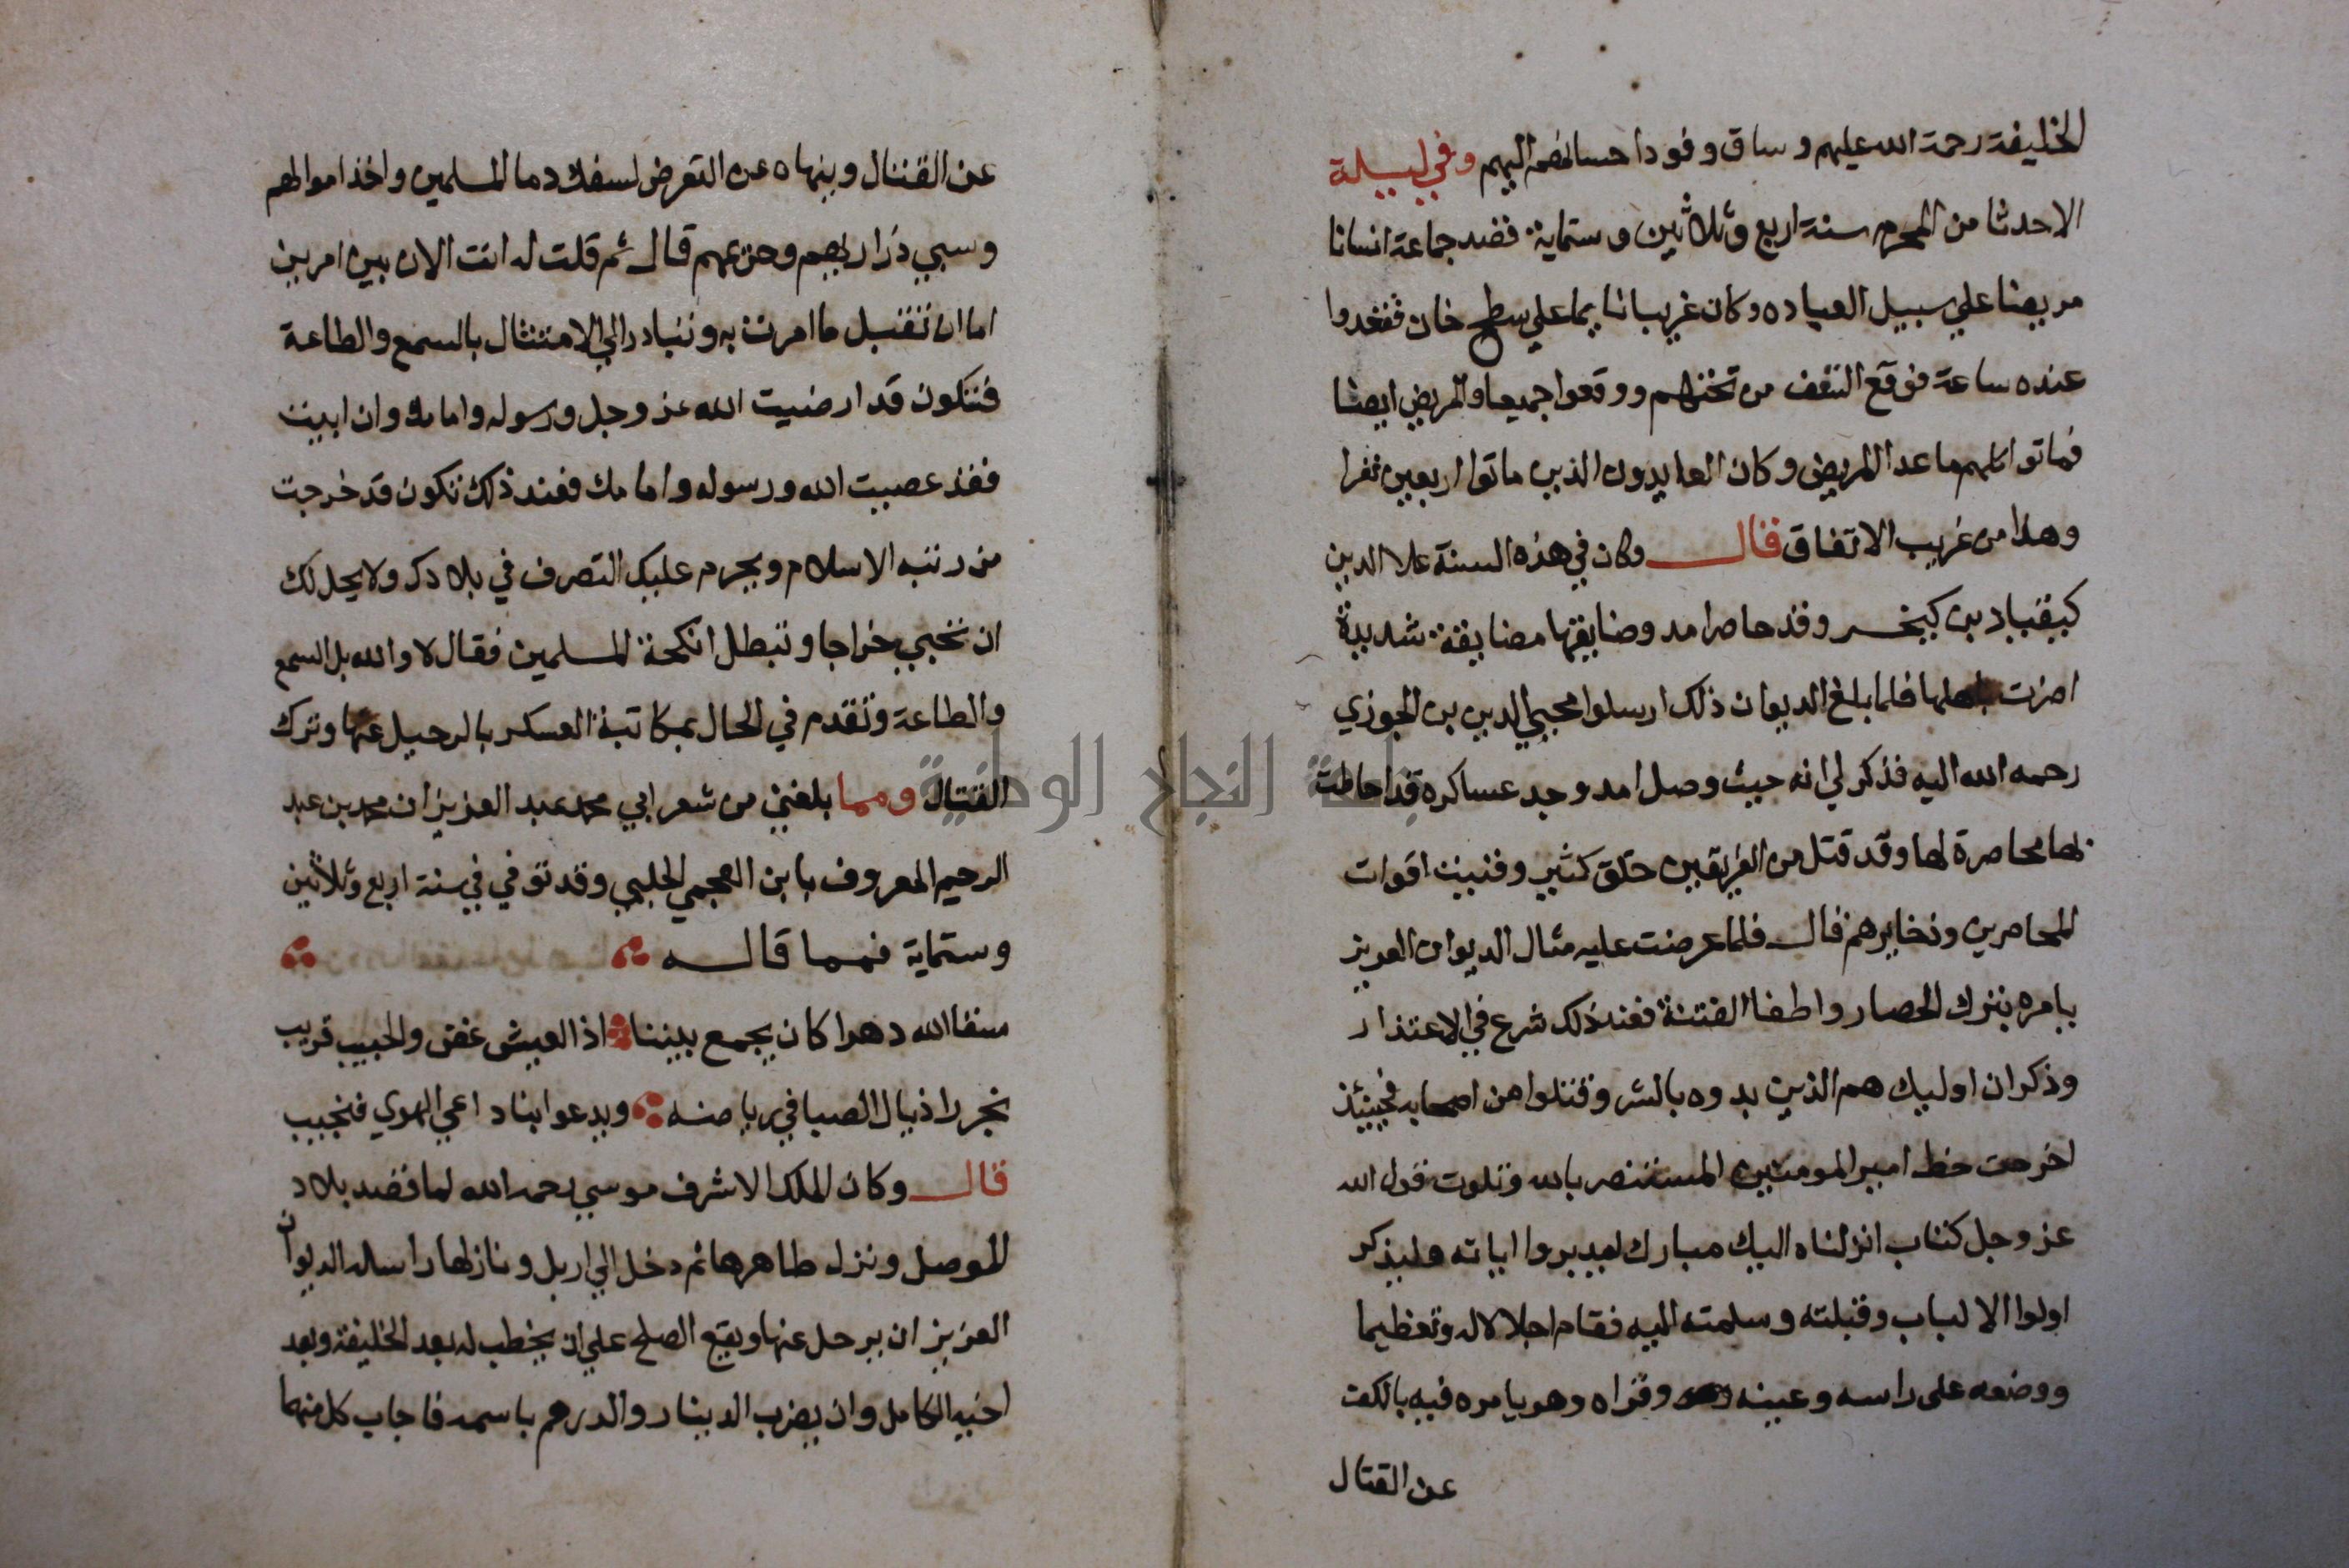 الخليفة رحمة الله عليهم وساق وفودا حسانضمه اليهم وفي ليلة
الاحدثا من المحرم سنة اربع وثلاثين وستماية قصد جماعة انسانا
مريضا علي سبيل العياده وكان غريبا نايما علي سطح خان فقعدوا
عنده ساعة فوقع السقف من تحتهم ووقعوا جميعا والمريض ايضا
فماتوا كلهم ما عدا المريض وكان العايدون الذين ماتوا اربعين نفرا
وهذا من غريب الاتفاق قال وكان في هذه السنة علا الدين
كيقباد بن كيخسر وقد حاصر امد وضايقها مضايقة شديدة
اضرت باهلها فلما بلغ الديوان ذلك ارسلوا محيي الدين بن الجوزي
رحمه الله اليه فذكر لي انه حيث وصل امد وجد عساكره قد احاطت
بها محاصرة لها وقد قتل من الفريقين خلق كثير وفنيت اقوات
المحاصرين وذخايرهم قال فلما عرضت عليه مثال الديوان العزيز
يامره بترك الحصار واطفا الفتنة فعند ذلك شرع في الاعتذار
وذكر ان اوليك هم الذين بدوه بالشر وقتلوا من اصحابه فحينئذ
اخرجت خط امير المومنين المستنصر بالله وتلوت قول الله
عز وجل كتاب انزلناه اليك مبارك ليدبروا اياته وليذكر
اولوا الالباب وقبلته وسلمته اليه فقام اجلالا له وتعظيما
ووضعه على راسه وعينه وقراه وهو يامره فيه بالكف
عن القتال
عن القتال وينهاه عن التعرض لسفك دما المسلمين واخذ اموالهم
وسبي ذراريهم وحريمهم قال ثم قلت له انت الان بين امرين
اما ان تقبل ما امرت به وتبادر الي الامتثال بالسمع والطاعة
فتكون قد ارضيت الله عز وجل ورسوله وامامك وان ابيت
فقد عصيت الله ورسوله وامامك فعند ذلك تكون قد خرجت
من رتبه الاسلام ويحرم عليك التصرف في بلادك ولا يحل لك
ان تجبي خراجا وتبطل انكحة المسلمين فقال لا والله بل السمع
والطاعة وتقدم في الحال بمكاتبة العسكر بالرحيل عنها وترك
القتال ومما بلغني من شعر ابي محمد عبد العزيز ان محمد بن عبد
الرحيم المعروف بابن العجمي الحلبي وقد توفي في سنة اربع وثلاثين
وستماية فمما قاله
سقا الله دهرا كان يجمع بيننا اذ العيش غض والحبيب قريب
نجرر اذيال الصبا في رياضه ويدعوا بنا داعي الهوي فنجيب
قال وكان الملك الاشرف موسي رحمه الله لما قصد بلاد
الموصل ونزل ظاهرها ثم دخل الي اربل ونازلها راسله الديوان
العزيز ان يرحل عنها ويقع الصلح علي ان يخطب له بعد الخليفة وبعد
اخيه الكامل وان يضرب الدينار والدرهم باسمه فاجاب كل منهما
جامعة النجاح الوطنية